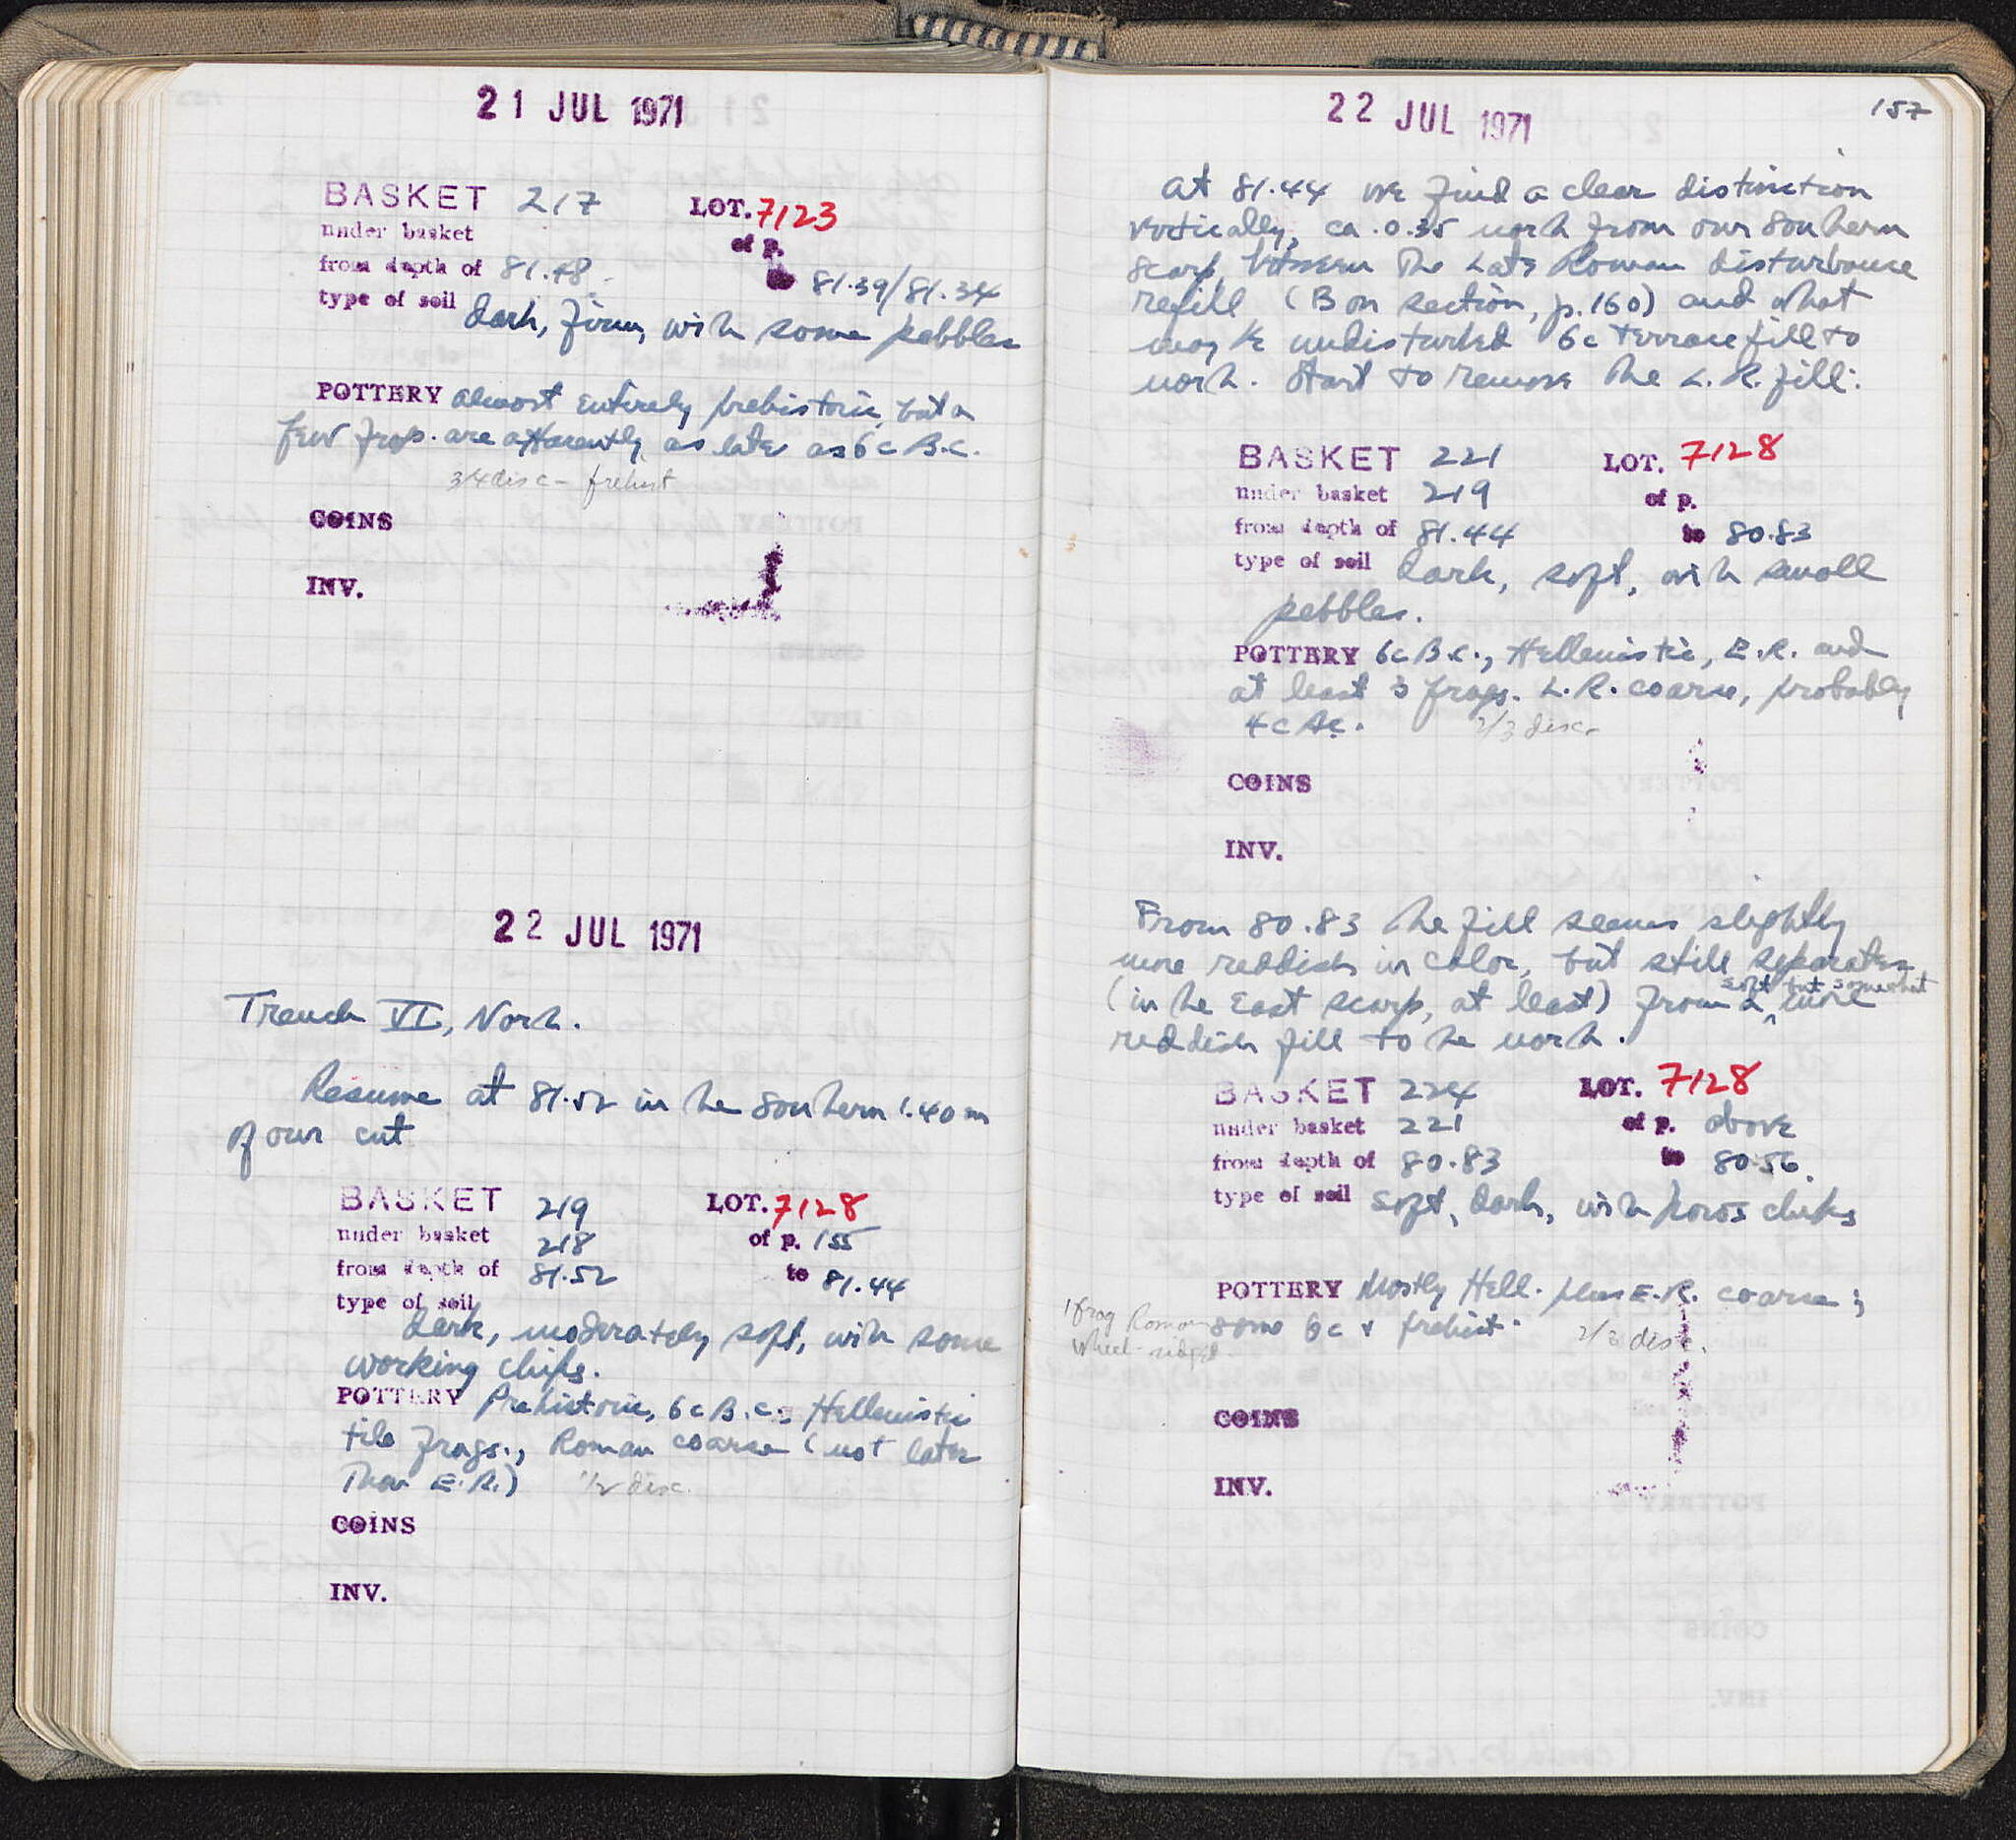 21 JUL 1971
BASKET 217 LOT. 7123
under basket of p.
from depth of 81.48 to 81.39/81.34
type of soil dark, firm, with some pebbles
POTTERY almost entirely prehistoric, but a
few frags. are apparently as late as 6c B.C.
3/4 disc - prehist
COINS
INV.
22 JUL 1971
Trench VI, North.
Resume at 81.52 in the southern 1.40 m
of our cut
BASKET 219 LOT. 7128
under basket 218 of p. 155
from depth of 81.52 to 81.44
type of soil
dark, moderately soft, with some
working chips.
POTTERY Prehistoric, 6c B.C., Hellenistic
tile frags., Roman coarse (not later
than E.R.) 1/2 disc.
COINS
INV.
22 JUL 1971
157
At 81.44 we find a clear distinction
vertically, ca. 0.35 north from our southern
scarp, between the Late Roman disturbance
refill (B on section, p. 160) and what
may be undisturbed 6c terrace fill to
north. Start to remove the L.R. fill:
BASKET 221 LOT. 7128
under basket 219 of p.
from depth of 81.44 to 80.83
type of soil dark, soft, with small
pebbles.
POTTERY 6c B.C., Hellenistic, E.R. and
at least 3 frags. L.R. coarse, probably
4c AC. 2/3 disc.
COINS
INV.
From 80.83 the fill seems slightly
more reddish in color, but still separates
(in the East scarp, at least) from a ^soft but somewhat more
reddish fill to the north.
BASKET 224 LOT. 7128
under basket 221 of p. above
from depth of 80.83 to 80.56.
type of soil soft, dark, with poros chips
POTTERY Mostly Hell. plus E.R. coarse;
some 6c & prehist. 2/3 disc.
1 frag Roman
wheel-ridged
COINS
INV.